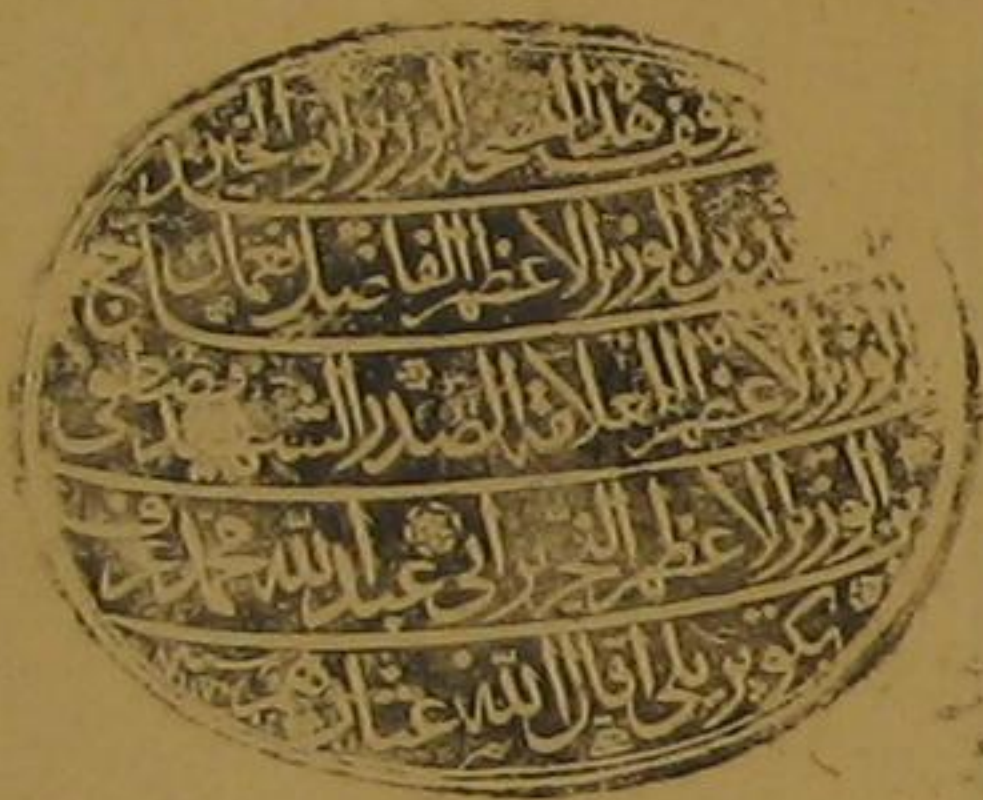 وقف هذه النسخة الوزير ابو الخير احمد
بن الوزير الاعظم الفاضل نعمان بن
الوزير الاعظم العلامة الصدر الشهيد مصطفى
بن الوزير الاعظم النحرير ابي عبد الله محمد عرف
بكوپريلي اقال الله عثارهم